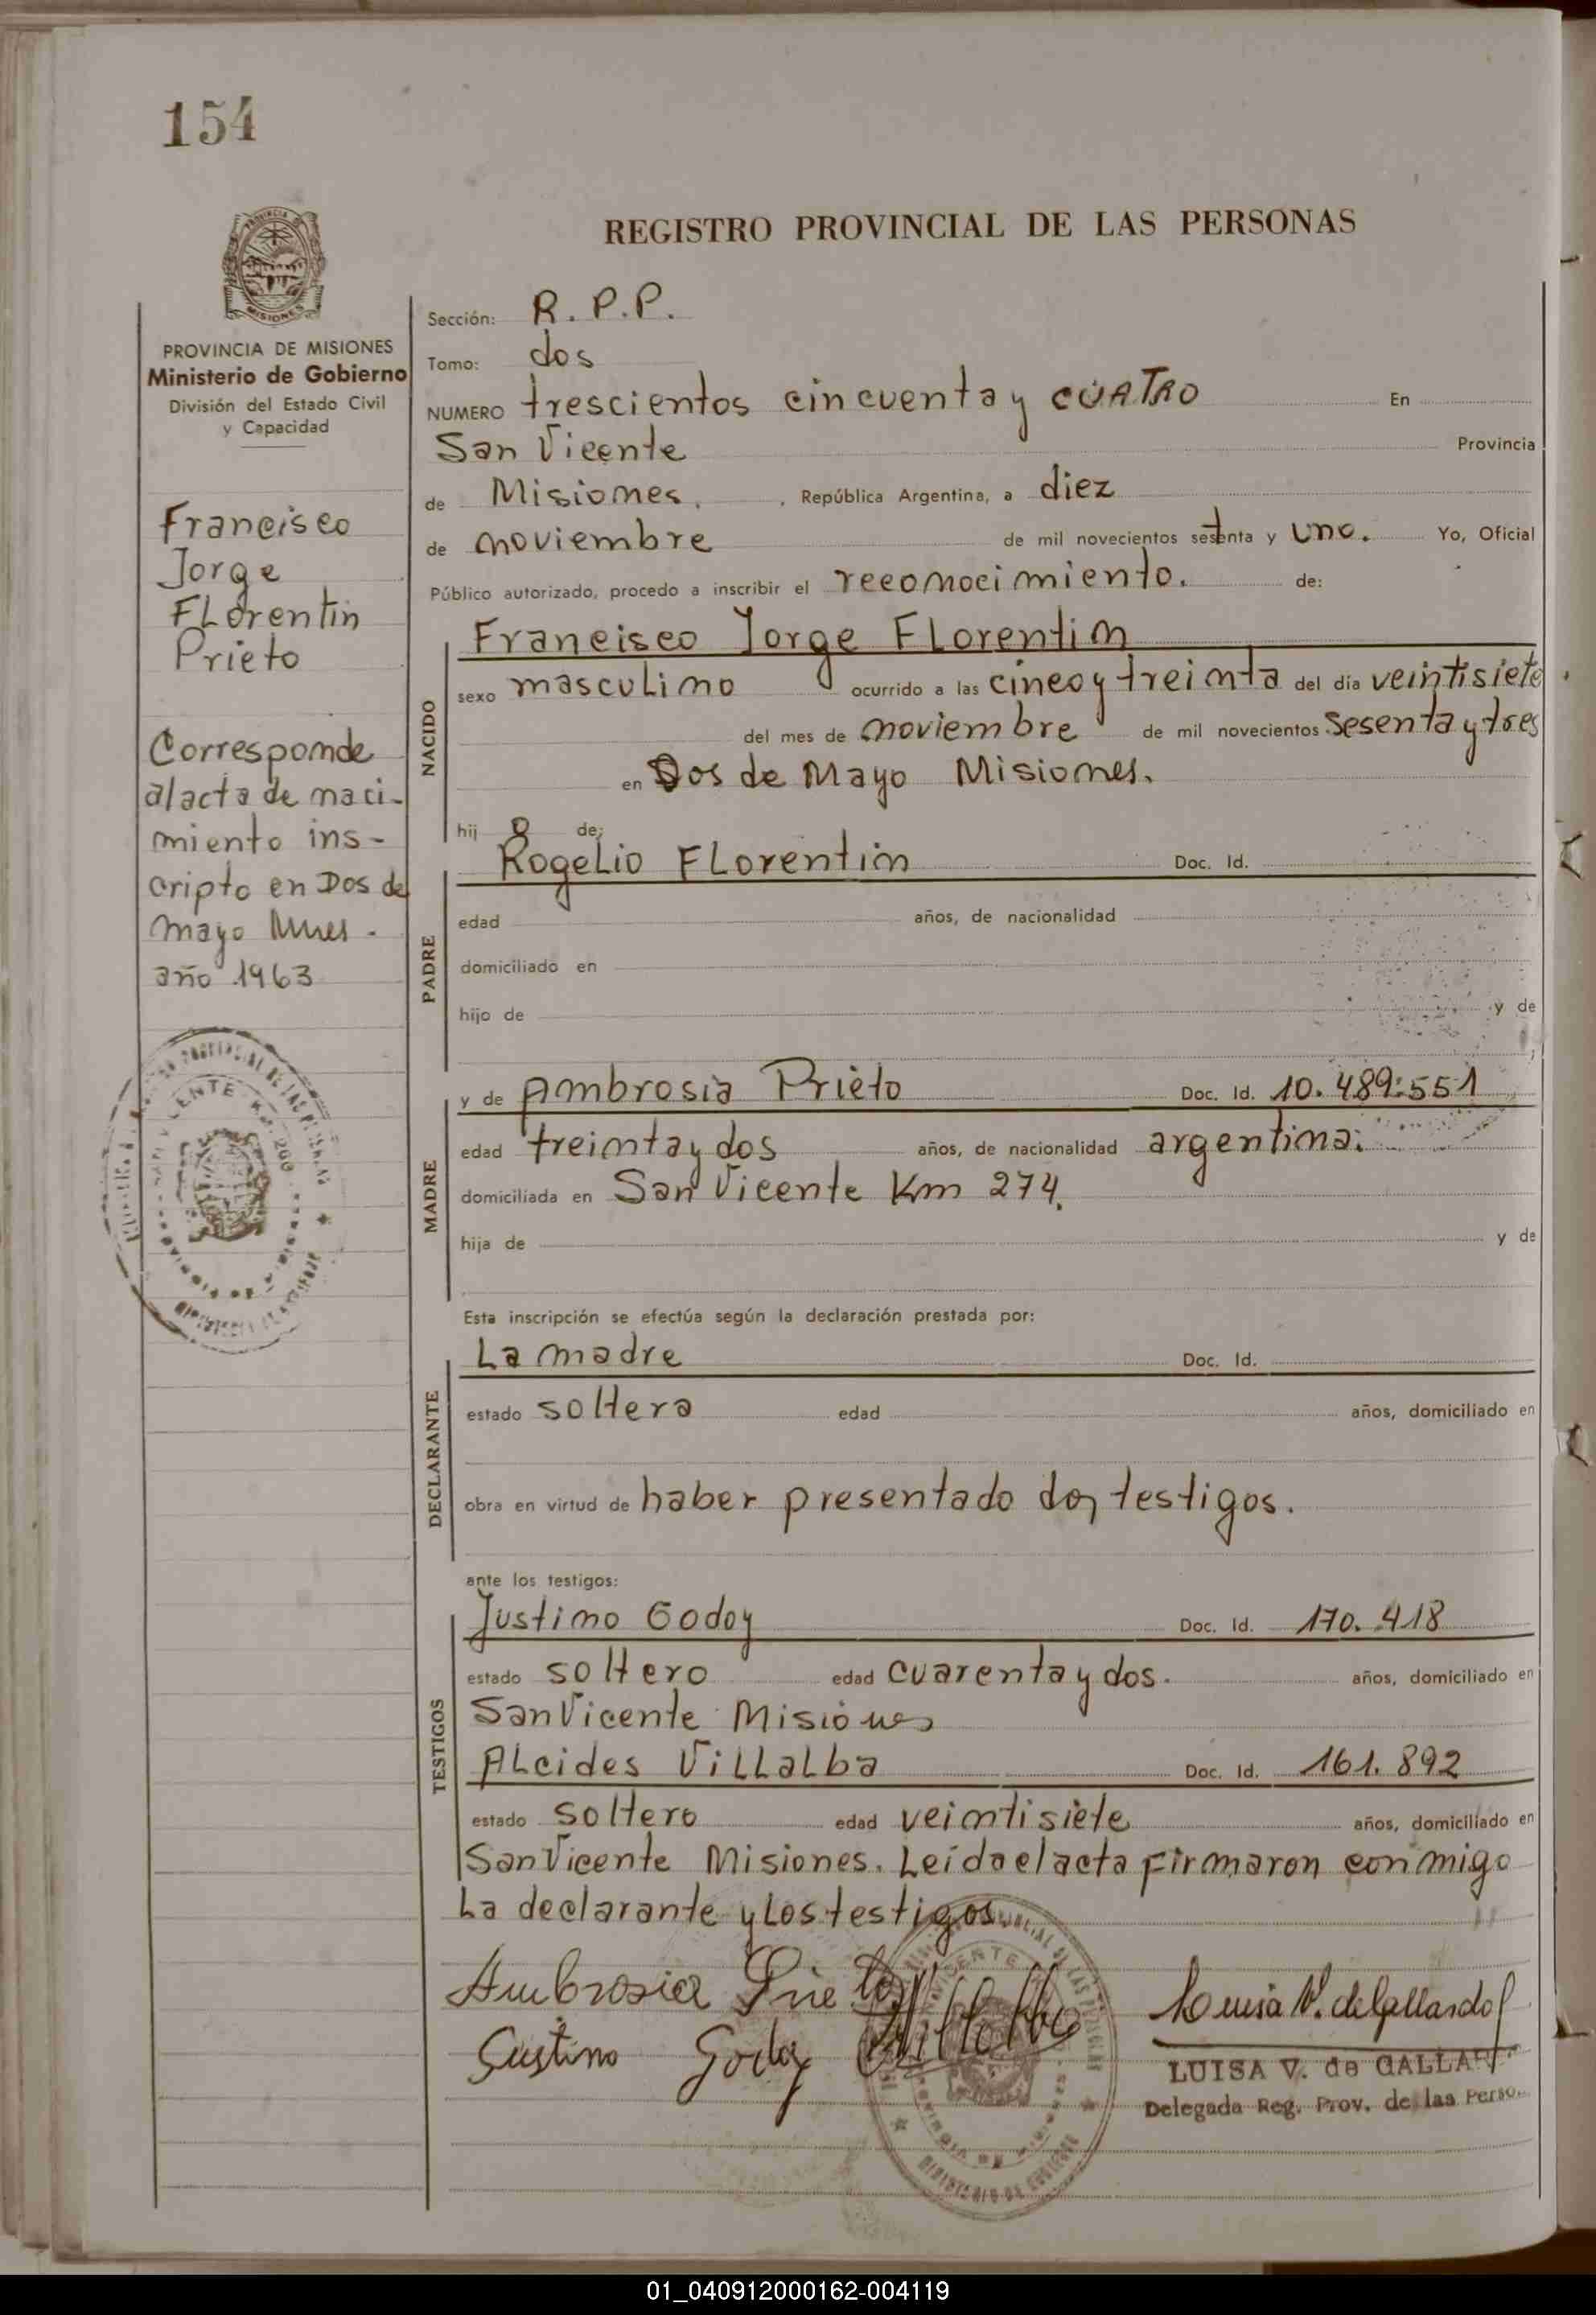 154
PROVINCIA DE MISIONES
Ministerio de Gobierno
División del Estado Civil
y Capacidad
Francisco
Jorge
FLorentin
Prieto
Corresponde
al acta de naci-
miento ins-
cripto en Dos de
mayo Mnes.
año 1963
REGISTRO PROVINCIAL DE LAS PERSONAS
Sección: R. P. P.
Tomo: dos
NUMERO trescientos cincuenta y CUATRO En
San Vicente Provincia
de Misiones. , República Argentina, a diez
de noviembre de mil novecientos setenta y uno. Yo, Oficial
Público autorizado, procedo a inscribir el reconocimiento. de:
NACIDO
Francisco Jorge FLorentin
sexo mascuLino ocurrido a las cinco y treinta del día veintisiete
del mes de noviembre de mil novecientos sesenta y tres
en Dos de Mayo Misiones.
hij o de:
PADRE
RogeLio FLorentin Doc. Id.
edad años, de nacionalidad
domiciliado en
hijo de y de
MADRE
y de Ambrosia Prieto Doc. Id. 10.489.551
edad treinta y dos años, de nacionalidad argentina.
domiciliada en San Vicente Km 274.
hija de y de
Esta inscripción se efectúa según la declaración prestada por:
DECLARANTE
La madre Doc. Id.
estado soltera edad años, domiciliado en
obra en virtud de haber presentado dos testigos.
ante los testigos:
TESTIGOS
Justino Godoy Doc. Id. 170.418
estado soltero edad cuarenta y dos. años, domiciliado en
San Vicente Misiones
ALcides ViLLaLba Doc. Id. 161.892
estado soltero edad veintisiete años, domiciliado en
San Vicente Misiones. Leída el acta firmaron conmigo
La declarante y Los testigos.
Ambrosia Prieto
Justino Godoy Villalba
Luisa V. de Gallardo
LUISA V. de GALLAR
Delegada Reg. Prov. de las Perso
01_040912000162-004119